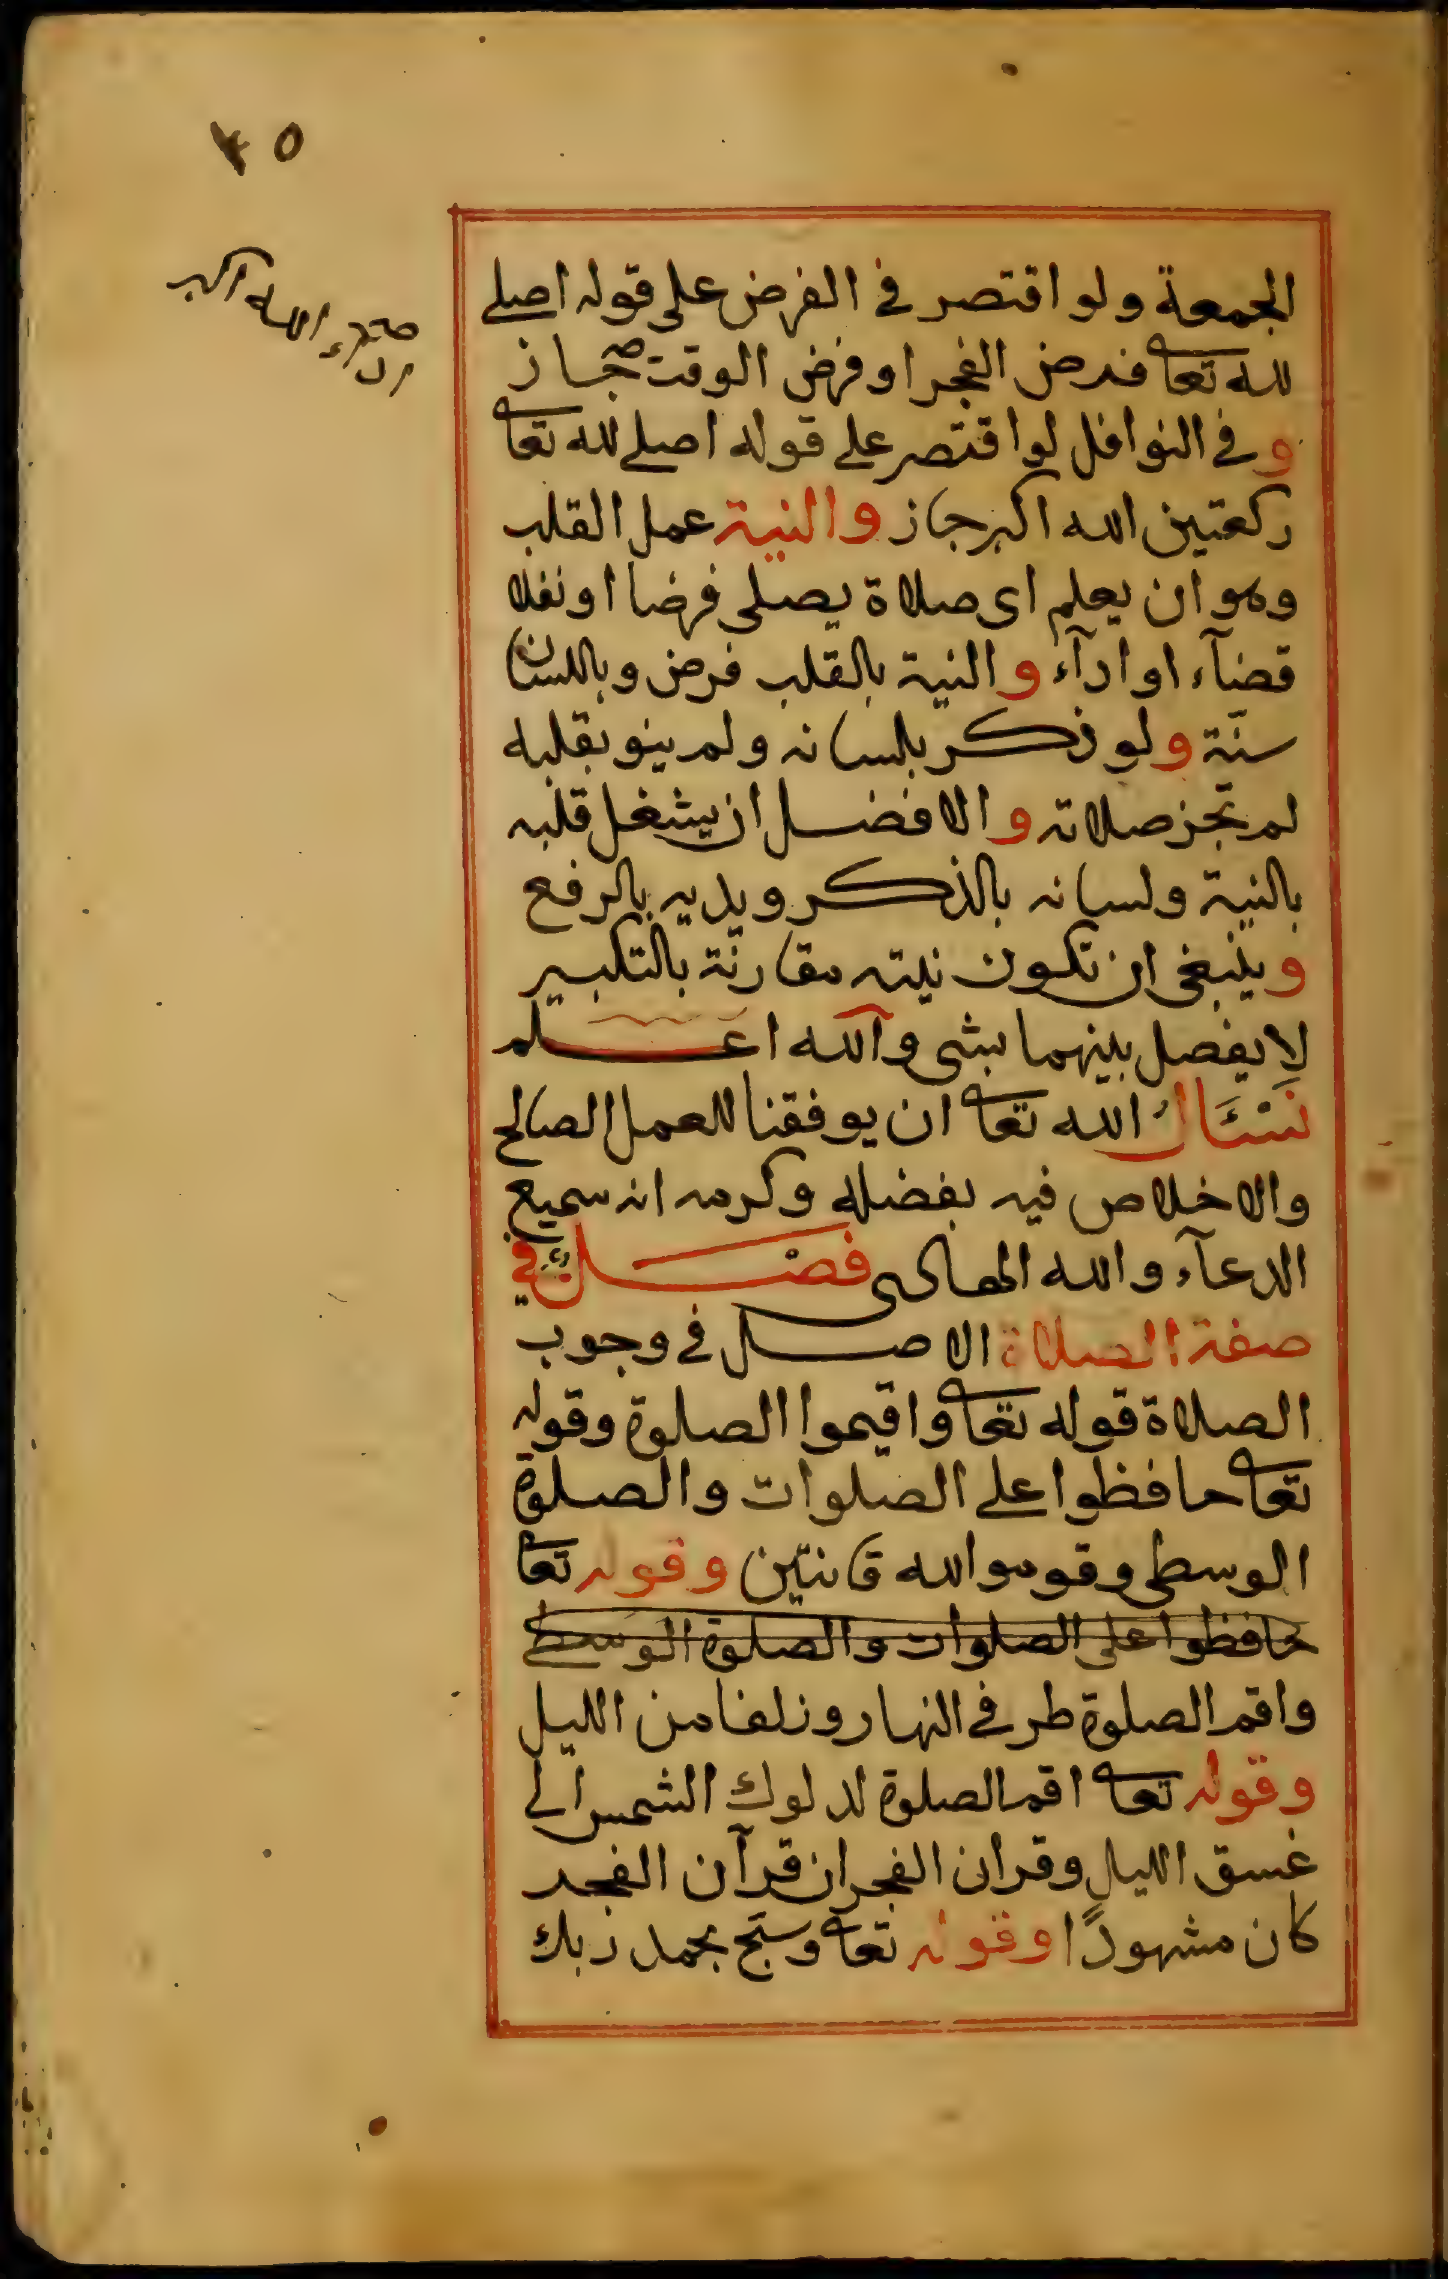 ٤٥
اداء الله اكبر
صح
الجمعة ولو اقتصر في الفرض على قوله اصلي
لله تعا فرض الفجر او فرض الوقت جاز
و في النوافل لو اقتصر على قوله اصلي لله تعا
ركعتين الله اكبر جاز والنية عمل القلب
وهو ان يعلم اى صلاة يصلى فرضا او نفلا
قضآء او ادآء والنية بالقلب فرض وباللسان
سنّة ولو ذكر بلسانه ولم ينو بقلبه
لم تجز صلاته والافضل ان يشغل قلبه
بالنية ولسانه بالذكر ويديه بالرفع
وينبغى ان تكون نيته مقارنة بالتكبير
لا يفصل بينهما بشى والله اعلم
نَسْئَالُ الله تعا ان يوفقنا للعمل الصالح
والاخلاص فيه بفضله وكرمه انه سميع
الدعآء والله الهادى فصْل في
صفة الصلاة الاصل في وجوب
الصلاة قوله تعا واقيموا الصلوة وقوله
تعا حافظوا على الصلوات والصلوة
الوسطى وقوموا لله قانتين وقوله تعا
حافظوا على الصلوات والصلوة الوسطى
واقم الصلوة طرفي النهار وزلفا من الليل
وقوله تعا اقم الصلوة لدلوك الشمس الى
غسق الليل وقران الفجر ان قرآن الفجر
كان مشهودًا وقوله تعا وسبّح بحمد ربك